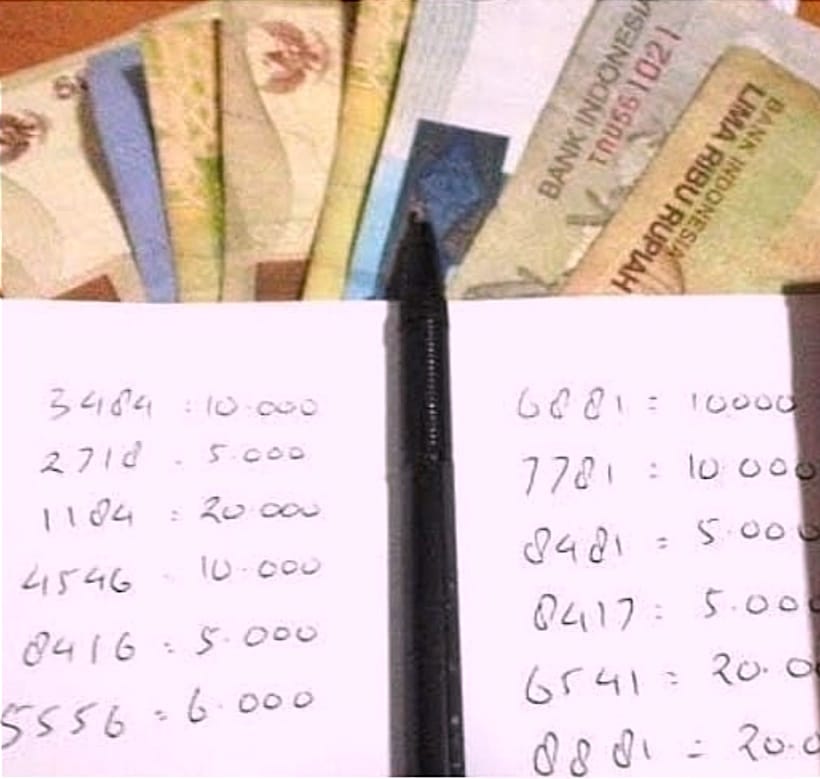 BANK INDONESIA
BANK INDONESIA
LIMA RIBU RUPIAH
3484 : 10.000
2718 - 5.000
1184 = 20.000
4546 - 10.000
8416 = 5.000
5556 = 6.000
6881 = 10000
7781 = 10.000
8481 = 5.000
8417 = 5.000
6541 = 20.0
8881 = 20.0